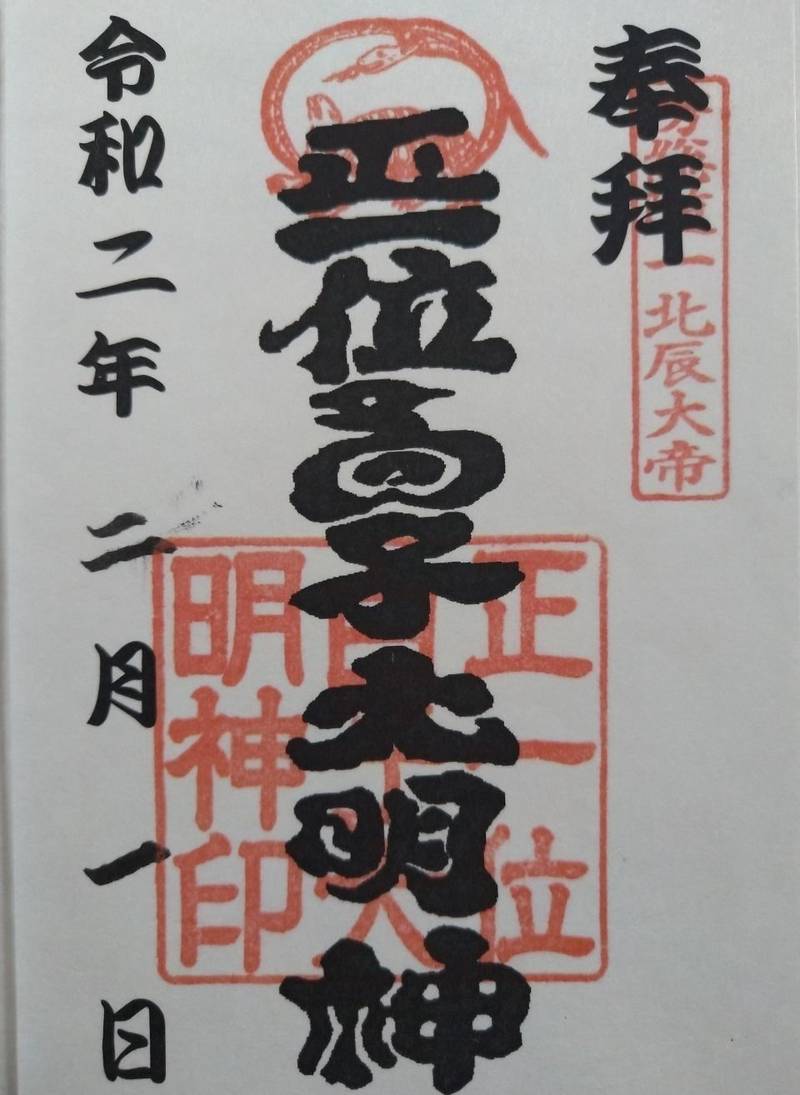 奉拝
一北辰大帝
正一位白子大明神
正一位
白子大
明神印
令和二年二月一日